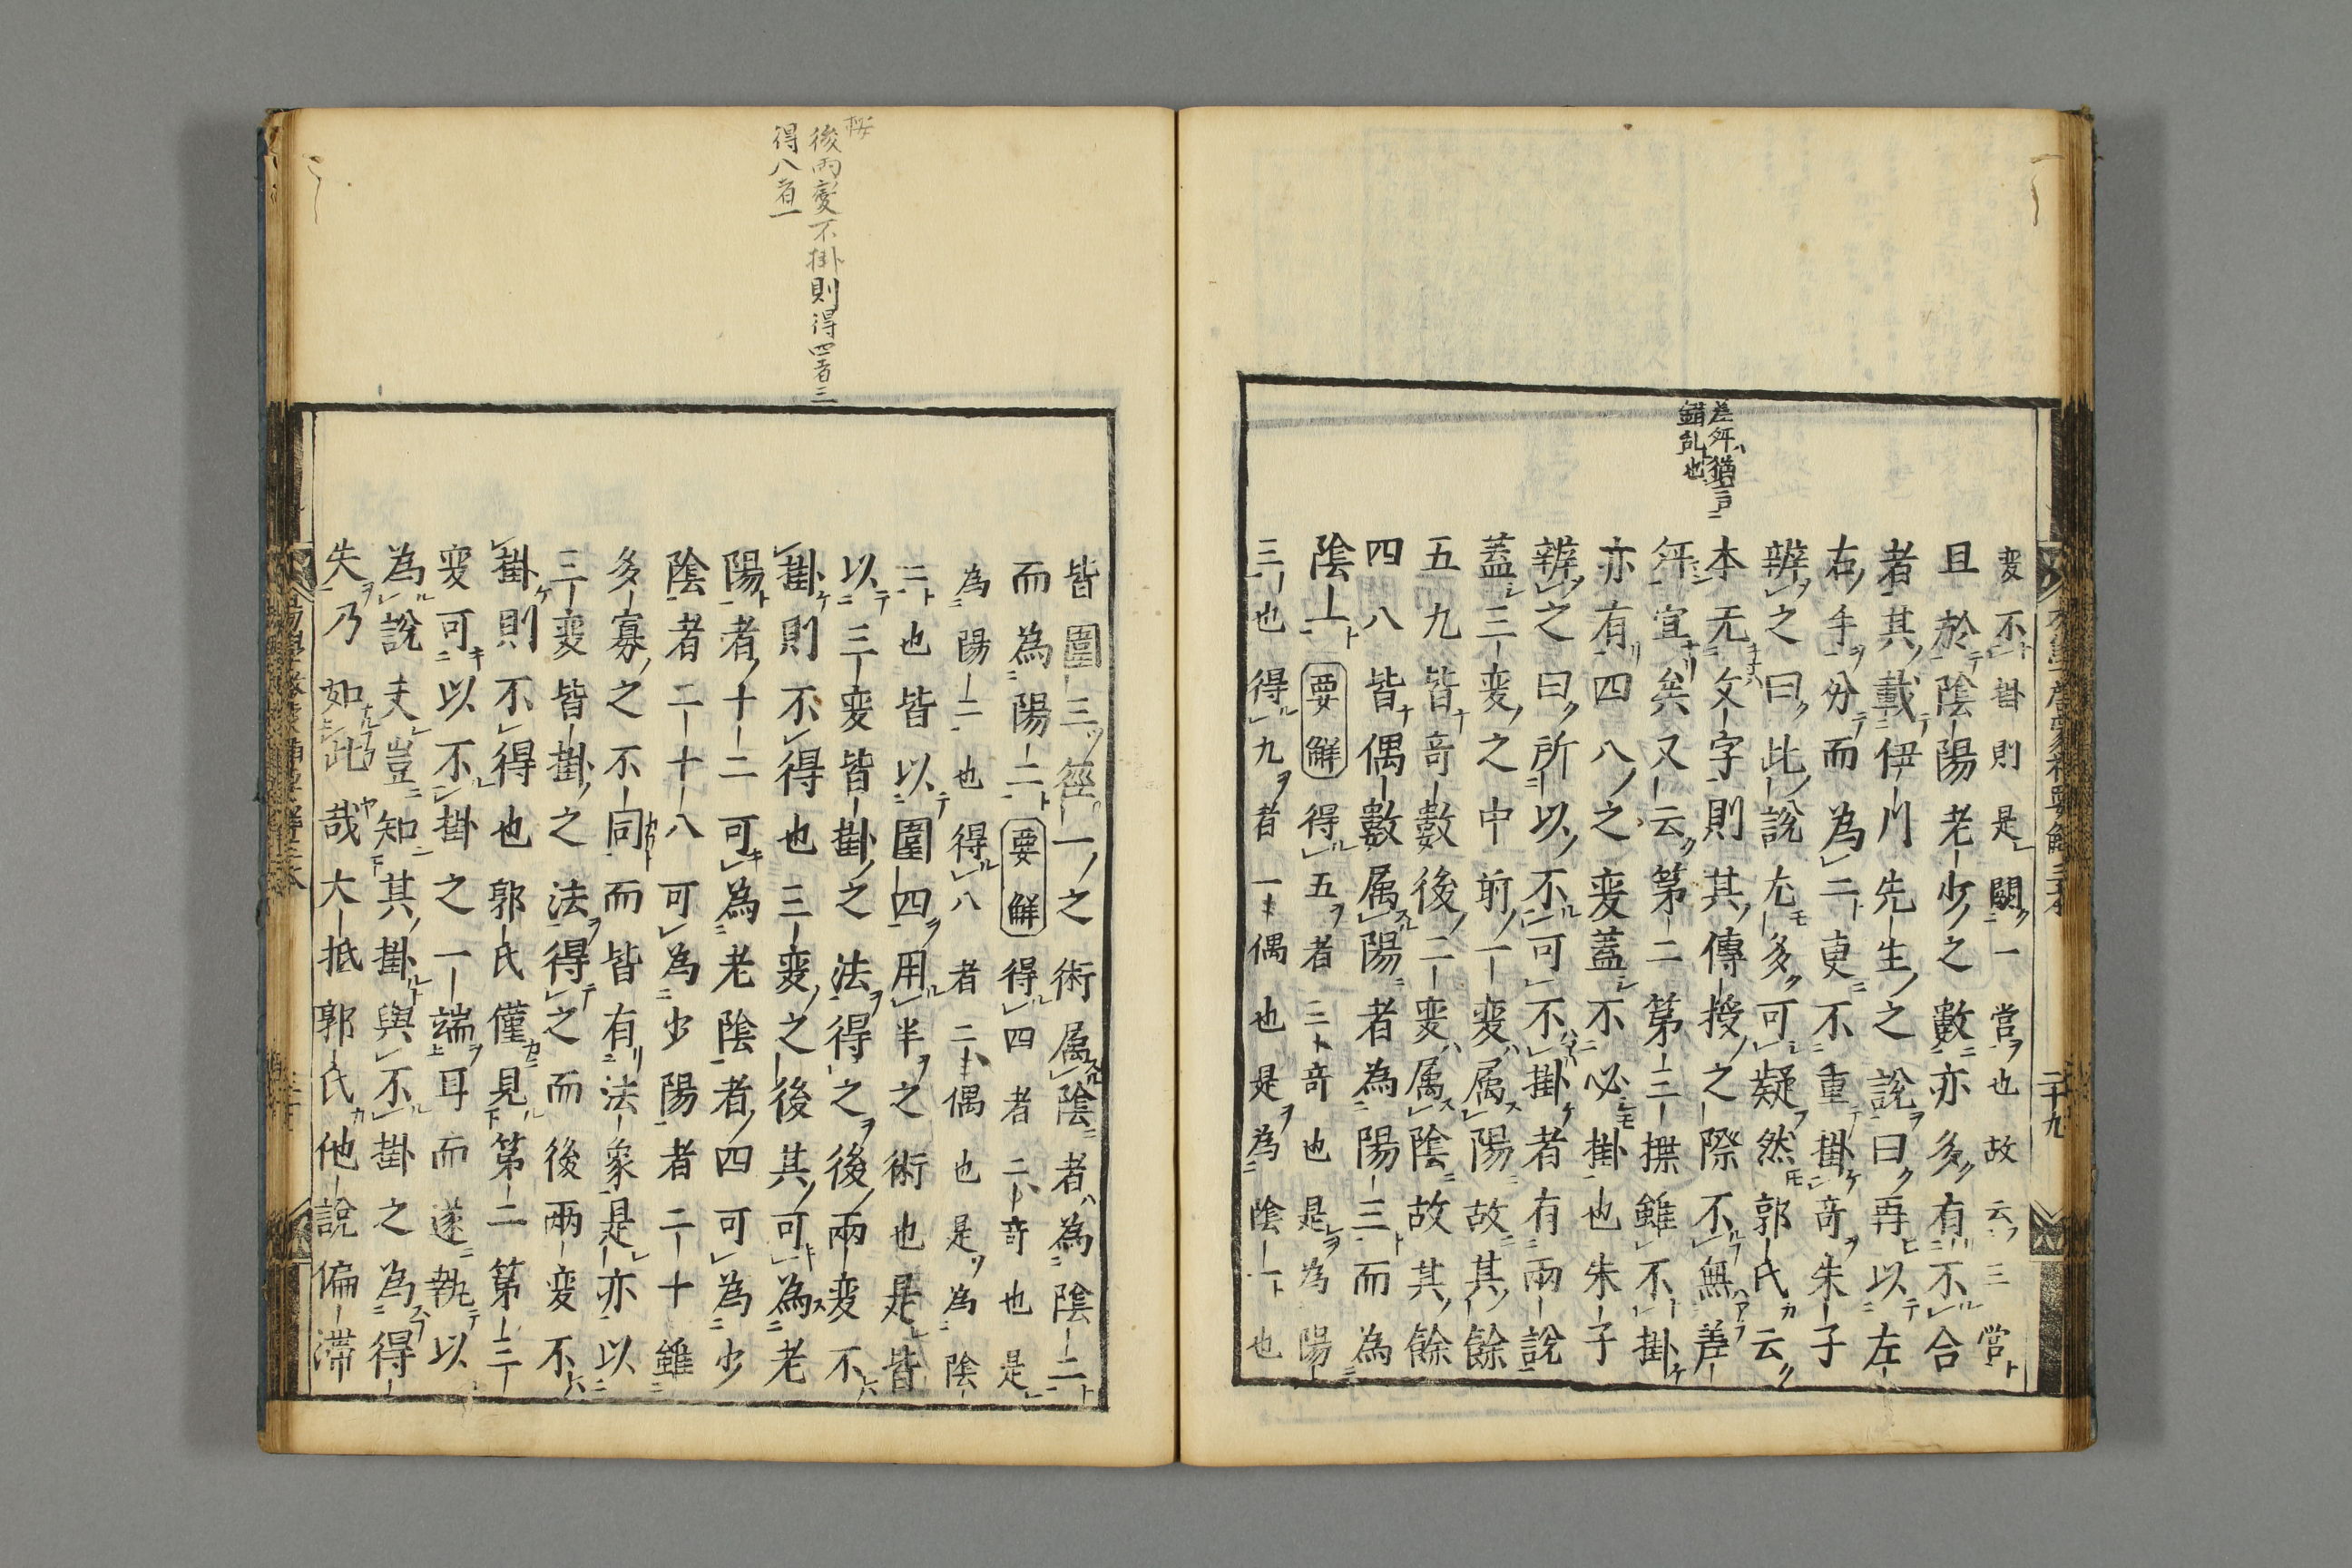 變不掛則是闕一營也故云三營
且於陰陽老少之數亦多有不合
者其載伊川先生之說曰再以左
右手分而為二更不重掛奇朱子
辨之曰此說尤多可疑然郭氏云
本无文字則其傳授之際不無差
舛宜矣又云第二第三揲雖不掛
亦有四八之變蓋不必掛也朱子
辨之曰所以不可不掛者有兩說
蓋三變之中前一變屬陽故其餘
五九皆奇數後二變屬陰故其餘
四八皆偶數屬陽者為陽三而為
陰一要解得五者三奇也是為陽
三也得九者一偶也是為陰一也
差舛猶言
錯乱也
二十九
按
後両變不掛則得四者三
得八者一
皆圍三徑一之術屬陰者為陰二
而為陽二要解得四者二奇也是
為陽二也得八者二偶也是為陰
二也皆以圍四用半之術也是皆
以三變皆掛之法得之後兩變不
掛則不得也三變之後其可為老
陽者十二可為老陰者四可為少
陰者二十八可為少陽者二十雖
多寡之不同而皆有法象是亦以
三變皆掛之法得之而後兩變不
掛則不得也郭氏僅見第二第三
變可以不掛之一端耳而遂執以
為說夫豈知其掛與不掛之為得
失乃如此哉大抵郭氏他說偏滯